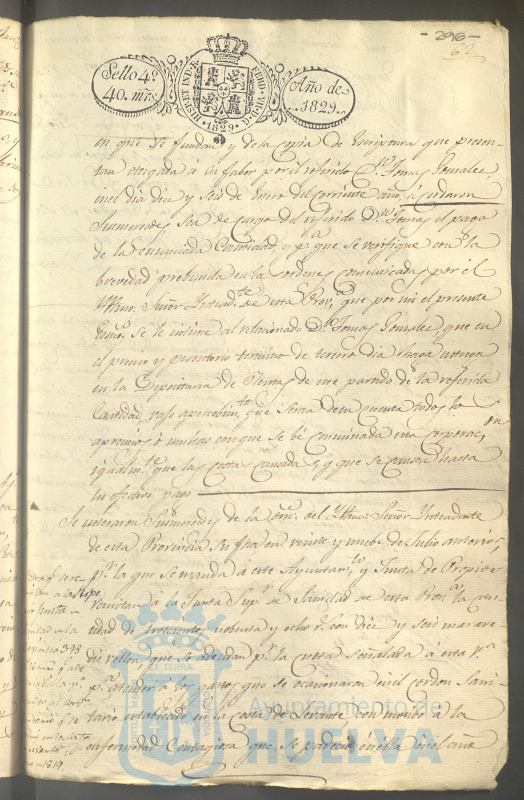 - 296 -
62
Sello 4º
40. mrs.
HISP. ET IND. R.
FERD. VII D. G.
1829
Año de
1829.
en que se fundan y de la copia de Escriptura que presen-
tan otorgada á su fabor por el referido Dn. Tomas Gonzalez
en el dia diez y seis de Enero del corriente año, acordaron
Sus mercedes sea de cargo del referido Dn. Tomas el pago
de la enunciada Cantidad, y pa. que se verifique con la
brevedad prebenida en las ordenes comunicadas por el
Yltmo. Señor Yntendte. de esta Prova. que por mi el presente
Esno. se le intime al relacionado Dn. Tomas Gonzalez que en
el preciso y perentorio termino de tercero dia haga entrega
en la Depositaria de Rentas de este partido de la referida
Cantidad, vajo apercebimto. que seran de su cuenta todos los
apremios ó multas con que se be comminada esta corporacion
igualmte. que las costas causadas, y que se causen hasta
su efectivo pago
Se enteraron Sus mercedes de la orn. del Yltmo. Señor Yntendente
de esta Provincia, su fha en veinte y nuebe de Julio anterior,
pr. la que se manda á este Ayuntamto. y Junta de Propios
á la Junta Supr. de Sanidad de esta Prova. la can-
tidad de trescientos nobenta y ocho rs. con diez y seis marave-
dis vellon que se adeudan pr. la cuota señalada á esta Va.
pa. atender á los gastos que se ocasionaron en el cordon Sani-
tario establecido en la Costa de Levante con motibo á la
enfermedad Contagiosa que se padecia en ella en el año
en 1819.
Ayuntamiento de
HUELVA